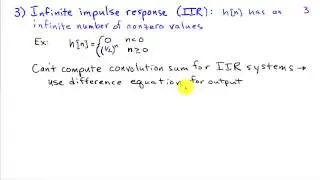 3) Infinite impulse response (IIR): h[n] has an 3
infinite number of nonzero values
Ex: h[n] = { 0 n<0
(1/2)ⁿ n≥0
Can't compute convolution sum for IIR systems →
use difference equation for output